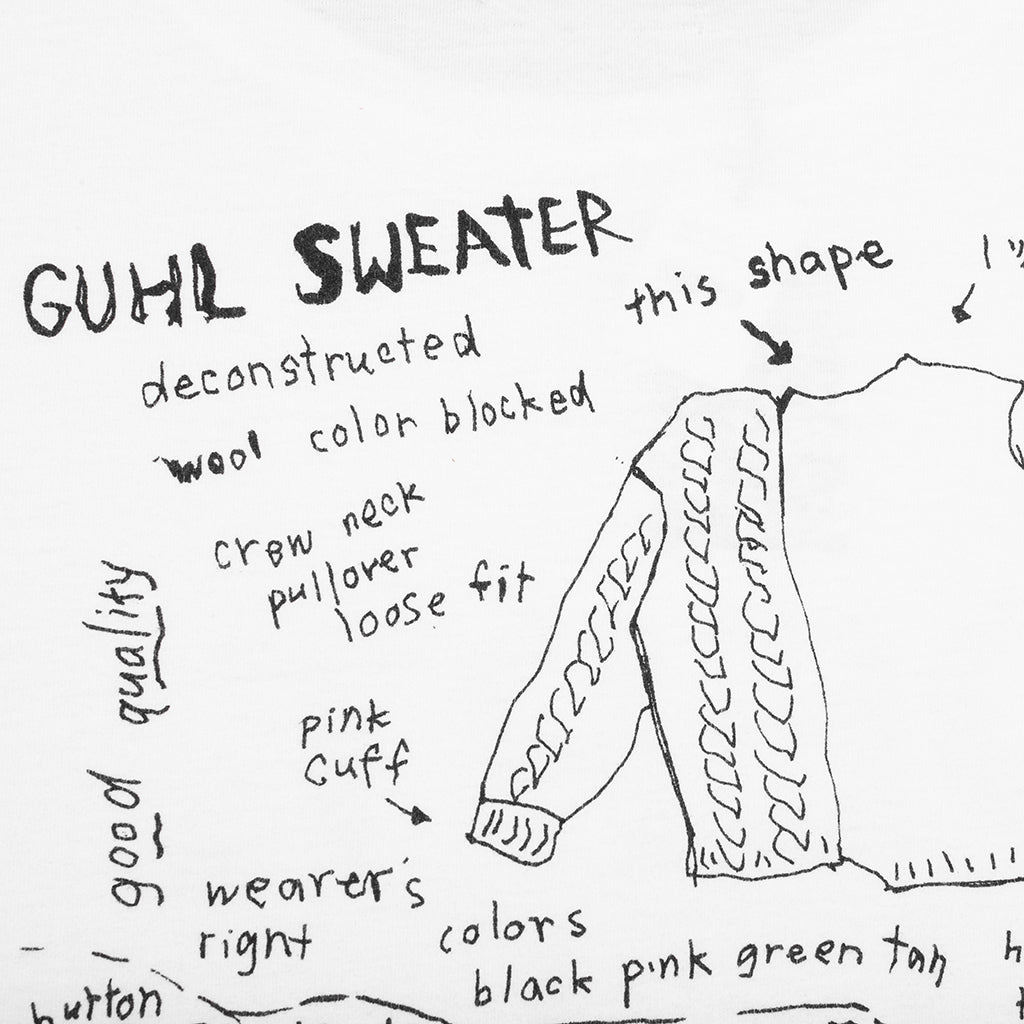 GUHL SWEATER
deconstructed
wool color blocked
crew neck
pullover
loose fit
this shape
1"
good quality
pink
cuff
wearer's
right
colors
black pink green tan
button